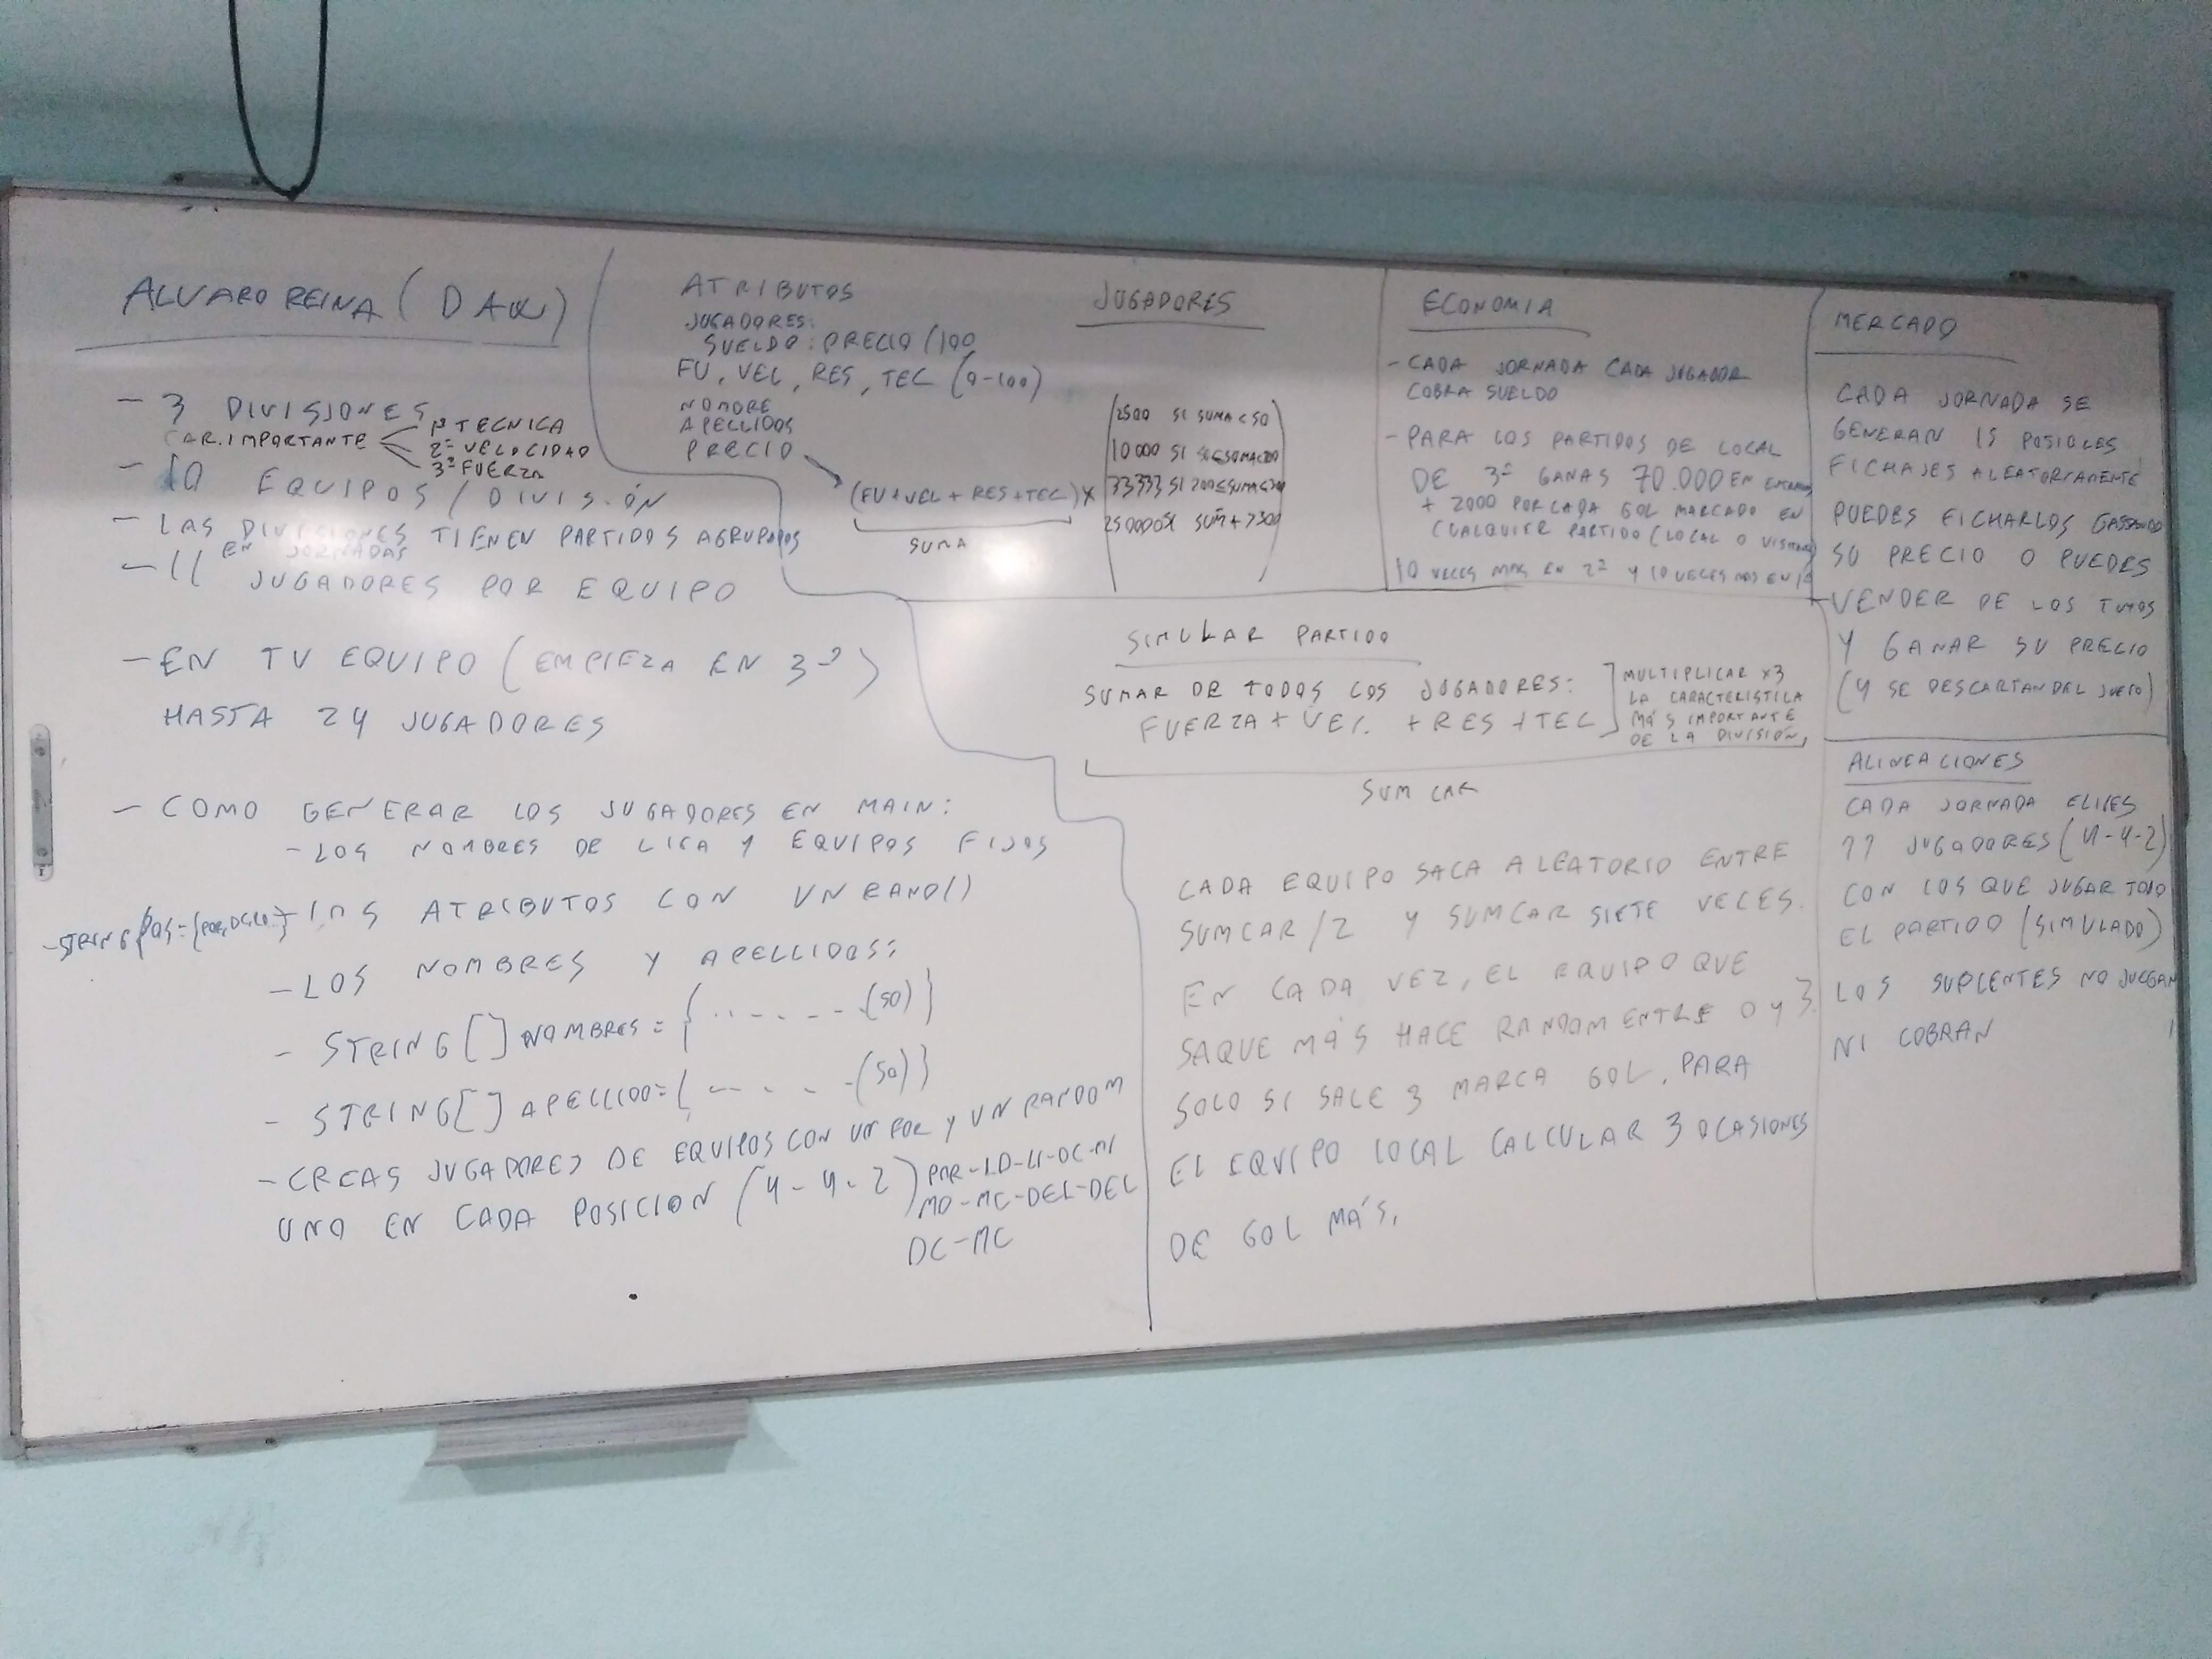 ALVARO REINA (DAW)
- 3 DIVISIONES
CAR. IMPORTANTE
1ª TECNICA
2ª VELOCIDAD
3ª FUERZA
- 10 EQUIPOS / DIVISIÓN
- LAS DIVISIONES TIENEN PARTIDOS AGRUPADOS
EN JORNADAS
- 11 JUGADORES POR EQUIPO
- EN TU EQUIPO (EMPIEZA EN 3ª)
HASTA 24 JUGADORES
- COMO GENERAR LOS JUGADORES EN MAIN:
- LOS NOMBRES DE LIGA Y EQUIPOS FIJOS
- LOS ATRIBUTOS CON UN RAND()
- STRING POS={
- LOS NOMBRES Y APELLIDOS:
- STRING[] NOMBRES = { ...... (50) }
- STRING[] APELLIDO = { .... (50) }
- CREAS JUGADORES DE EQUIPOS CON UN FOR Y UN RANDOM
UNO EN CADA POSICION (4-4-2)
POR-LD-LI-DC-MI
MD-MC-DEL-DEL
DC-MC
ATRIBUTOS
JUGADORES:
SUELDO: PRECIO/100
FU, VEL, RES, TEC (0-100)
NOMBRE
APELLIDOS
PRECIO
(FU+VEL+RES+TEC) X
SUMA
JUGADORES
2500 SI SUMA<50
10000 SI
33333 SI 200≤SUMA≤
SI SUMA >300
ECONOMIA
- CADA JORNADA CADA JUGADOR
COBRA SUELDO
- PARA LOS PARTIDOS DE LOCAL
DE 3ª GANAS 70.000 EN ENTRADAS
+ 2000 POR CADA GOL MARCADO EN
CUALQUIER PARTIDO (LOCAL O VISITANTE)
10 VECES MAS EN 2ª Y 10 VECES MAS EN 1ª
MERCADO
CADA JORNADA SE
GENERAN 15 POSIBLES
FICHAJES ALEATORIAMENTE
PUEDES FICHARLOS GASTANDO
SU PRECIO O PUEDES
VENDER DE LOS TUYOS
Y GANAR SU PRECIO
(Y SE DESCARTAN DEL JUEGO)
SIMULAR PARTIDO
SUMAR DE TODOS LOS JUGADORES:
FUERZA + VEL. + RES + TEC
MULTIPLICAR x3
LA CARACTERISTICA
MÁS IMPORTANTE
DE LA DIVISIÓN
SUM CAR
CADA EQUIPO SACA ALEATORIO ENTRE
SUMCAR/2 Y SUMCAR SIETE VECES.
EN CADA VEZ, EL EQUIPO QUE
SAQUE MÁS HACE RANDOM ENTRE 0 Y 3.
SOLO SI SALE 3 MARCA GOL. PARA
EL EQUIPO LOCAL CALCULAR 3 OCASIONES
DE GOL MÁS.
ALINEACIONES
CADA JORNADA ELIGES
11 JUGADORES (4-4-2)
CON LOS QUE JUGAR TODO
EL PARTIDO (SIMULADO)
LOS SUPLENTES NO JUEGAN
NI COBRAN